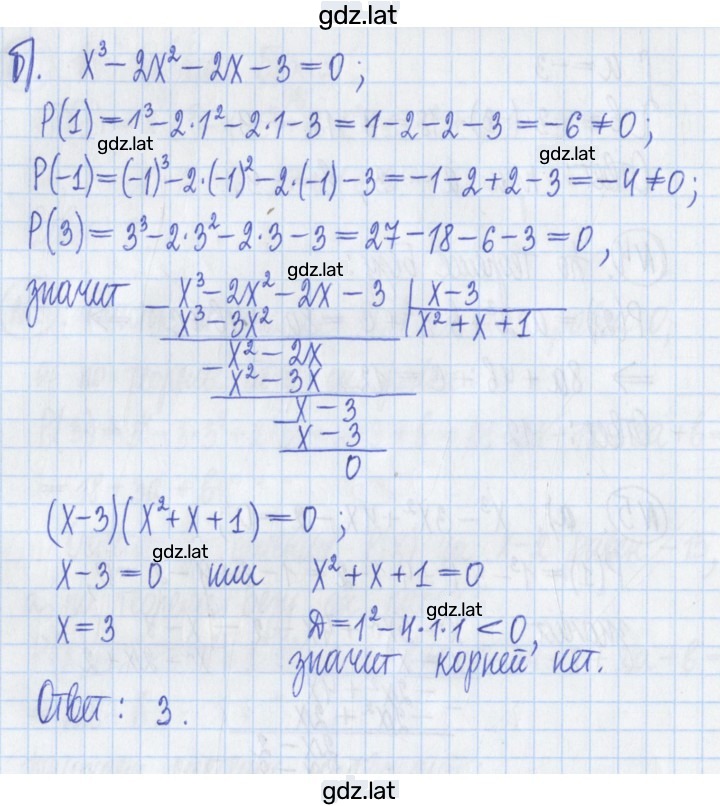 gdz.lat
б). x³ − 2x² − 2x − 3 = 0 ;
P(1) = 1³ − 2·1² − 2·1 − 3 = 1 − 2 − 2 − 3 = −6 ≠ 0 ;
gdz.lat gdz.lat
P(−1) = (−1)³ − 2·(−1)² − 2·(−1) − 3 = −1 − 2 + 2 − 3 = −4 ≠ 0 ;
P(3) = 3³ − 2·3² − 2·3 − 3 = 27 − 18 − 6 − 3 = 0 ,
gdz.lat
значит − x³ − 2x² − 2x − 3 | x − 3
x³ − 3x² | x² + x + 1
− x² − 2x
x² − 3x
− x − 3
x − 3
0
(x − 3)(x² + x + 1) = 0 ;
gdz.lat
x − 3 = 0 или x² + x + 1 = 0
gdz.lat
x = 3 Д = 1² − 4·1·1 < 0,
значит корней нет.
Ответ : 3 .
gdz.lat